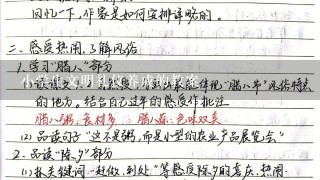 回忆一下,作家是如何安排详略的。
二、感受热闹,了解风俗
1. 学习“腊八”部分
小学生文明礼仪养成的教案
的地方。结合自己过年的感受作批注
腊八粥:食材多 腊八蒜:色味双美
(2) 品读句子“这不是粥,而是小型的农业产品展览会”
2. 品读“除夕”部分
(1) 抓关键词:赶做、到处 等感受除夕的喜庆、热闹